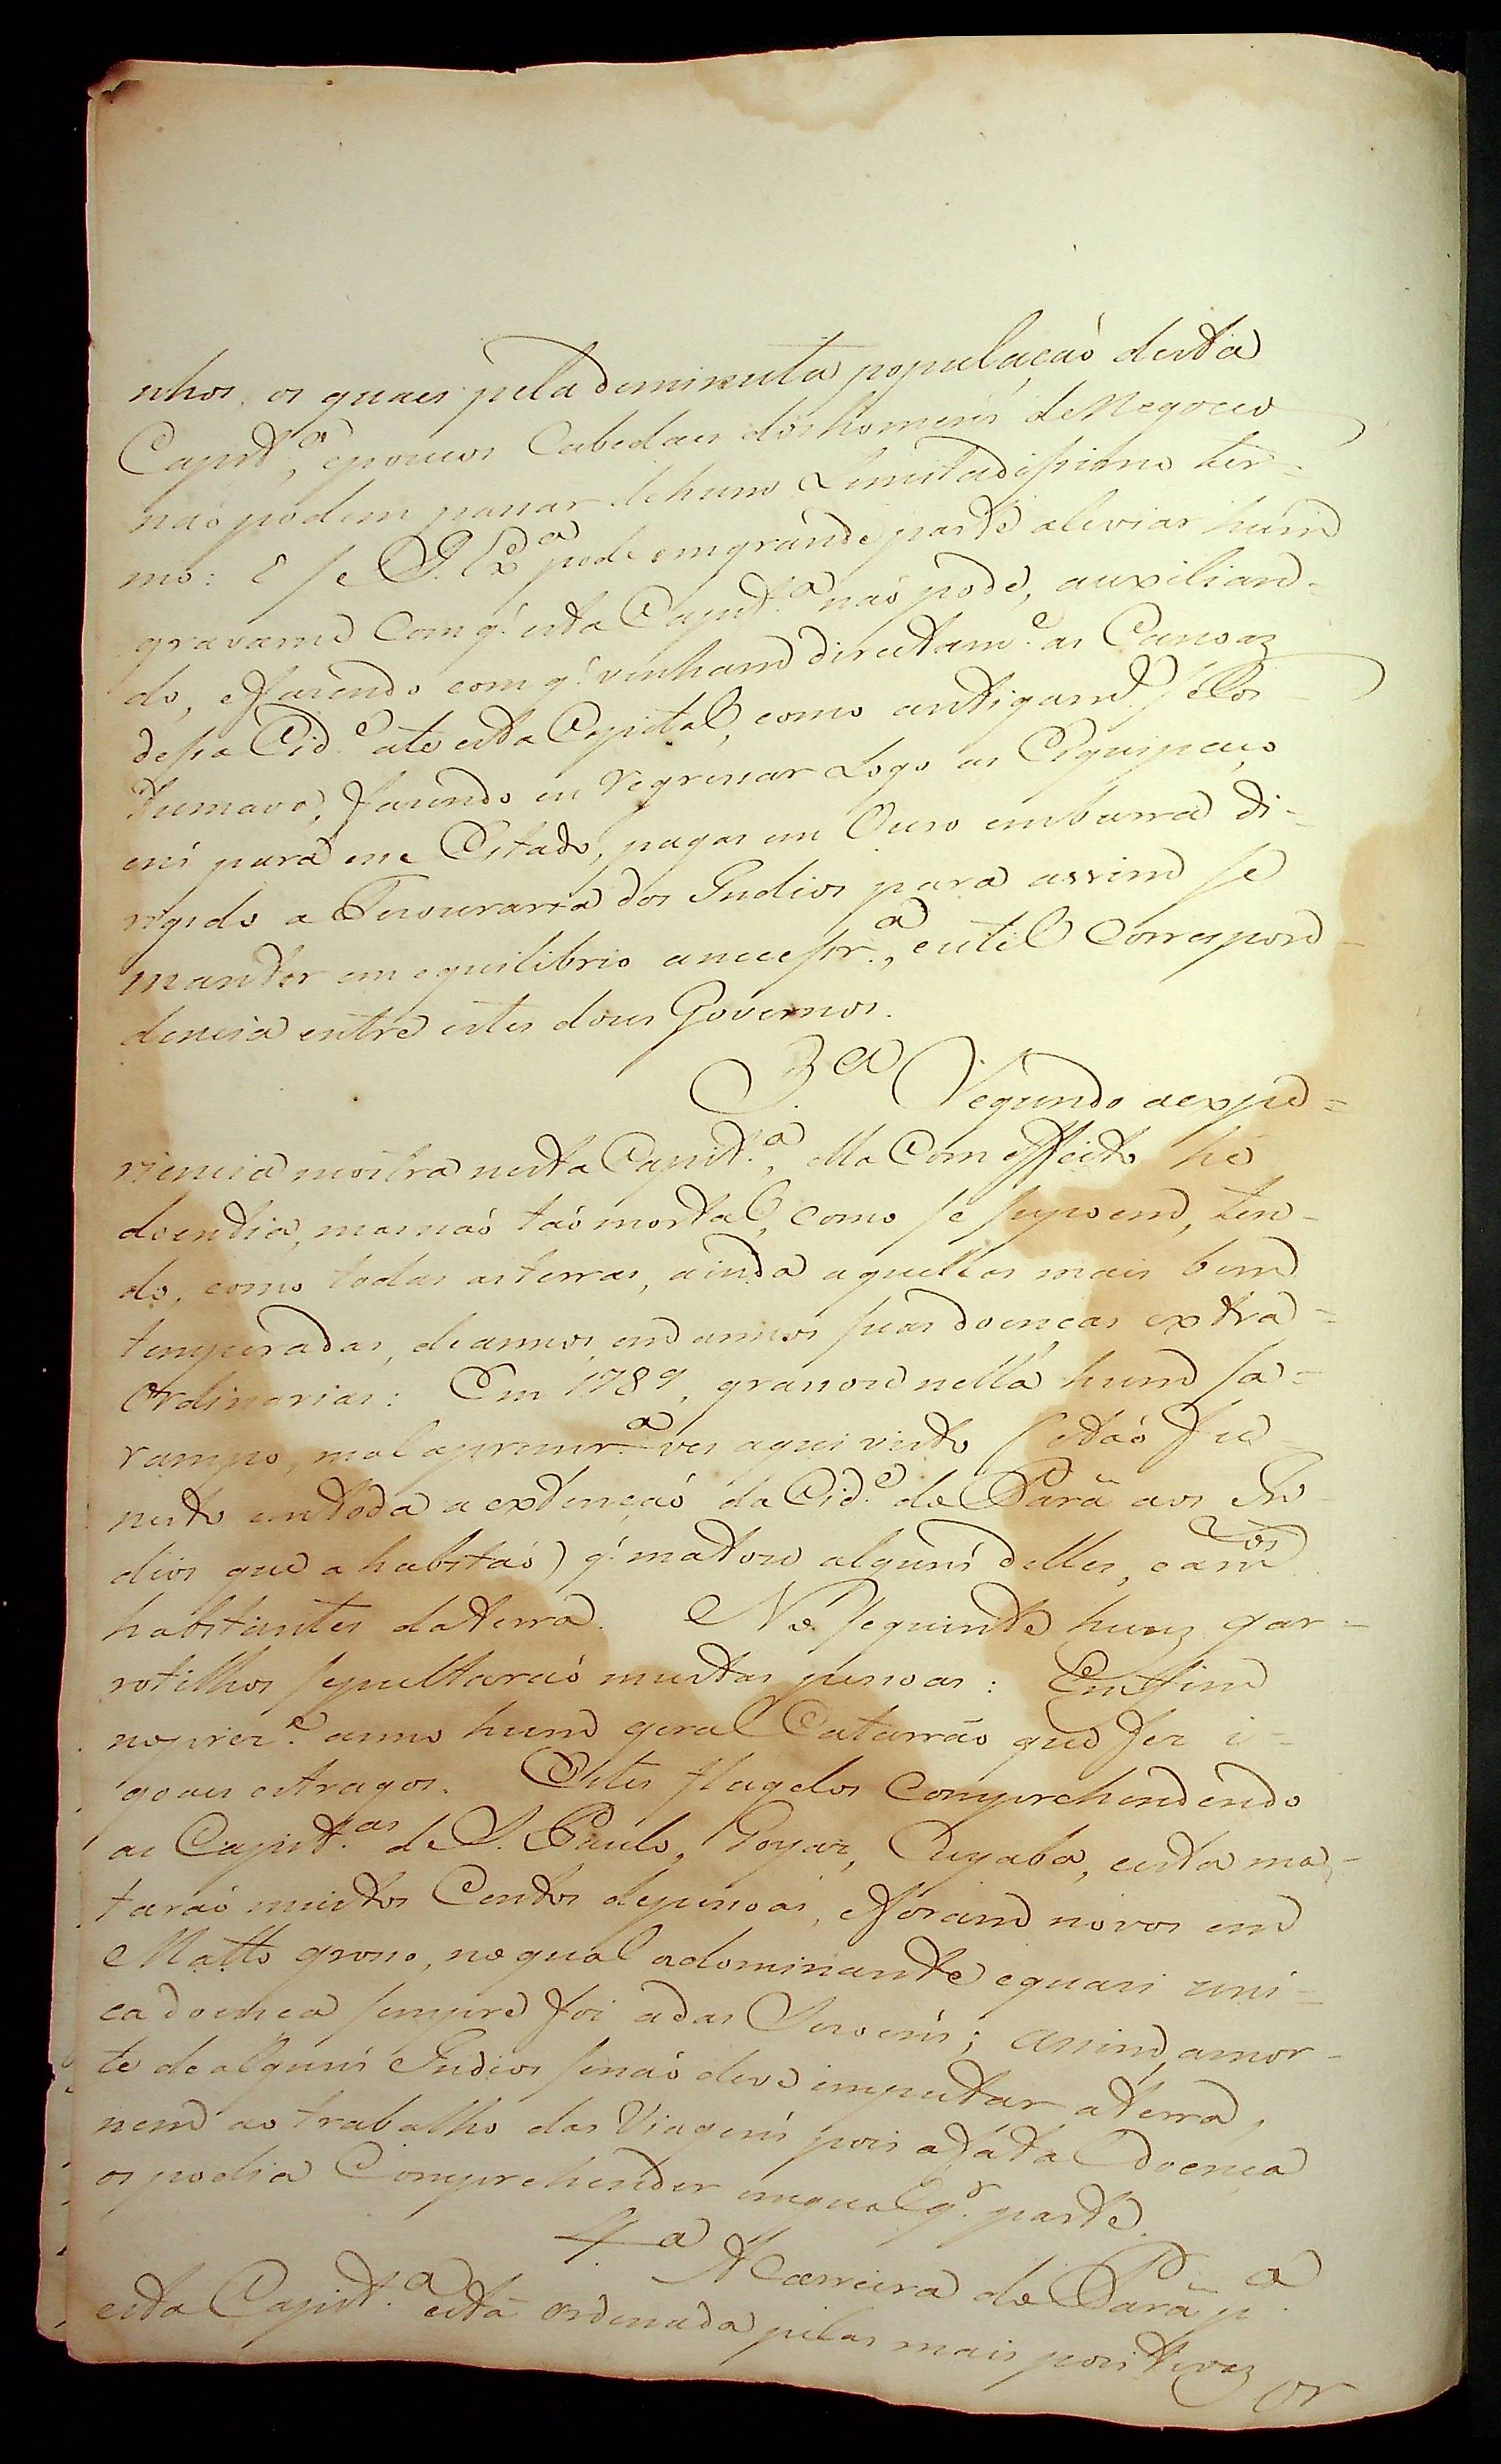 nhos, os quaes pela deminuta populaçaõ desta
Capit.ª, e poucos Cabedaes dos homens de Negocio
naõ podem passar de hum Limitadissimo ter-
mo: E se V. Ex.ª pode em grande parte aleviar hum
gravame com q̃ esta Capit.ª naõ pode, auxilian-
do, e fazendo com q̃ venham directam.e as Canoaz
dessa Cid.e ate esta Capital, como antigam.e se Cos-
tumava, fazendo eu regressar Logo as Equipaço
ens para esse Estado, pagas em Ouro em barra di-
rigido a Thesouraria dos Indios para assim se
manter em equilibrio a necessr.ª, e util Correspon-
dencia entre estes dous Governos.
3.ª Segundo a expe=
riencia mostra nesta Capit.ª, ella Com effeito he
doentia, mas naõ taõ mortal, como se supoem, ten-
do, como todas as terras, ainda aquellas mais bem
temperadas, de annos, em annos suas doenças extra=
ordinarias: Em 1789, grassou nella hum sa=
rampo, mal a primr.ª ves aqui visto (e taõ fu-
nesto em toda a extençaõ da Cid.e do Pará aos In
dios que a habitaõ) q̃ matou alguns delles, e a m.tos
habitantes da terra. No seguinte huns gar-
rotilhos sepultaraõ muitas pessoas: Em fim
no prez.e anno hum geral Catarraõ que fez i-
goaes estragos. Estes flagelos Comprehendendo
as Capit.as de S. Paulo, Goyaz, Cuyaba, e esta ma-
taraõ muitos Centos de pessoas, e foram novos em
Matto grosso, no qual a dominante e quasi uni-
ca doença sempre foi a das Sesoens; assim, a mor-
te de alguns Indios se naõ deve imputar a terra,
nem ao trabalho das Viagens pois a fatal doença
os podia Comprehender em qualq.r parte.
4.ª A Carreira do Pará p.ª
esta Capit.ª está ordenada pelas mais positivaz
or